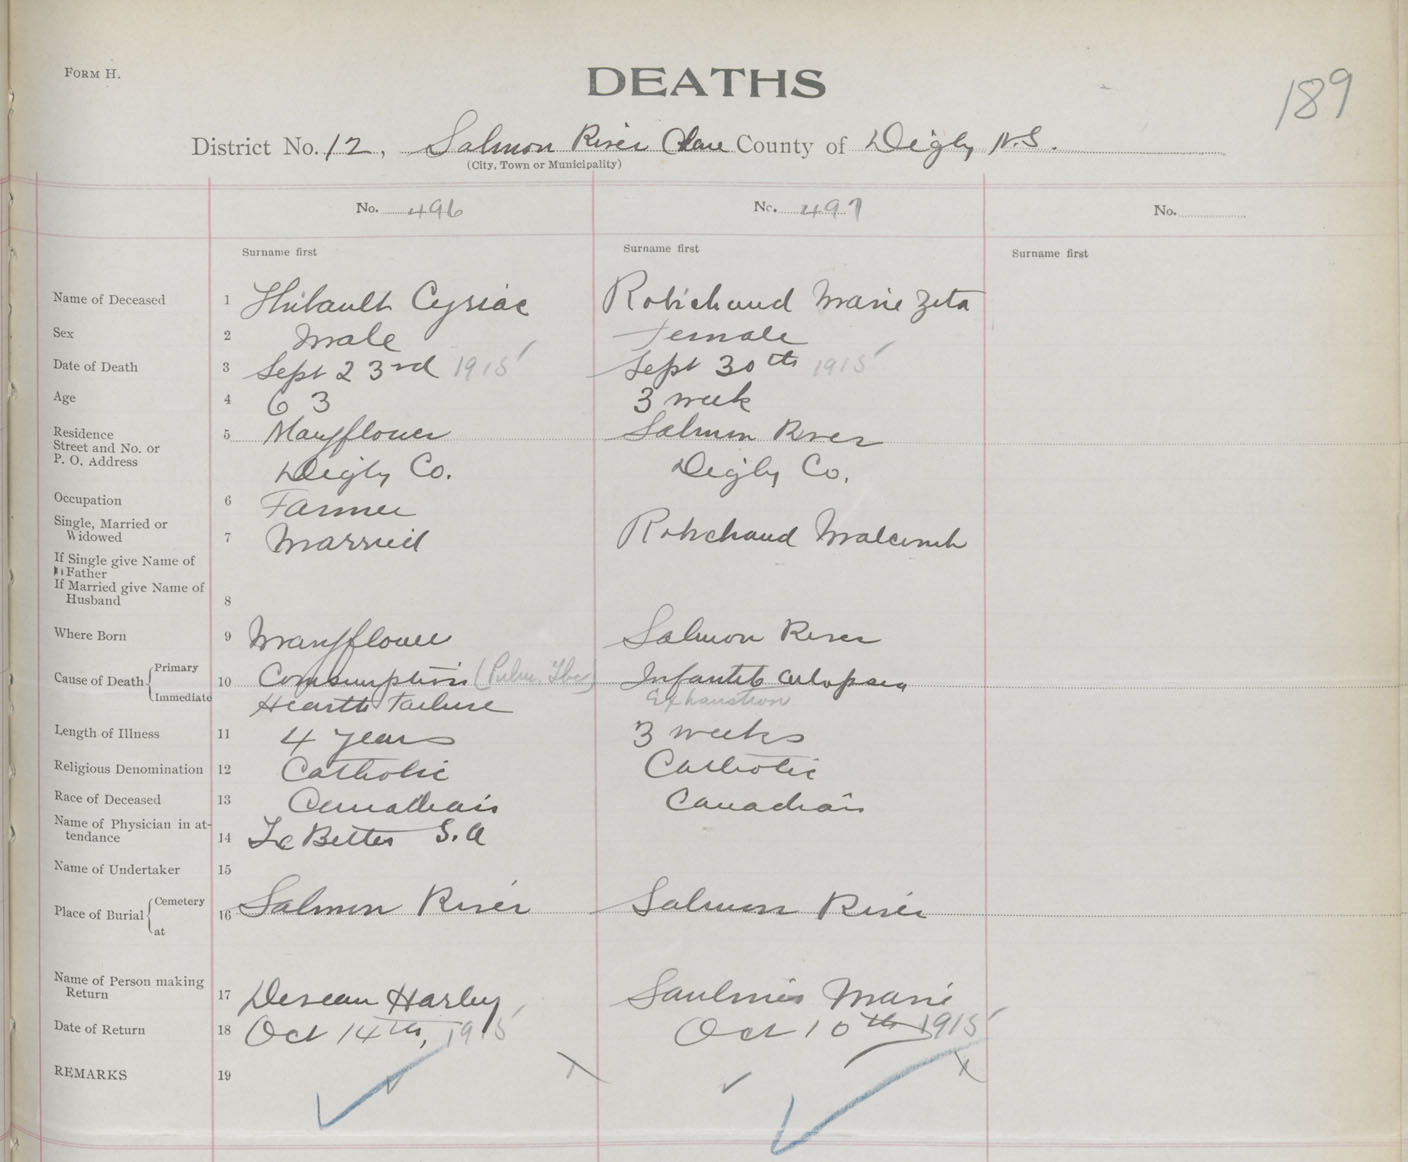 FORM H.
DEATHS
189
District No. 12, Salmon River Clare County of Digby N.S.
(City, Town or Municipality)
No. 496 No. 497 No.
Surname first Surname first Surname first
Name of Deceased 1 Thibault Cyriac Robichaud Marie Zeta
Sex 2 Male Female
Date of Death 3 Sept 23rd 1915 Sept 30th 1915
Age 4 63 3 week
Residence 5 Mayflower Salmon River
Street and No. or
P. O. Address Digby Co. Digby Co.
Occupation 6 Farmer
Single, Married or
Widowed 7 Married Robichaud Malcomb
If Single give Name of
Father
If Married give Name of
Husband 8
Where Born 9 Mayflower Salmon River
Cause of Death Primary 10 Consumption (Pulm. Tbc) Infantile
Immediate Hearth Failure Exhaustion
Length of Illness 11 4 years 3 weeks
Religious Denomination 12 Catholic Catholic
Race of Deceased 13 Canadian Canadian
Name of Physician in at-
tendance 14 Le Better
Name of Undertaker 15
Place of Burial Cemetery 16 Salmon River Salmon River
at
Name of Person making
Return 17 Deveau Harley Saulnier Marie
Date of Return 18 Oct 14th, 1915 Oct 10th 1915
REMARKS 19